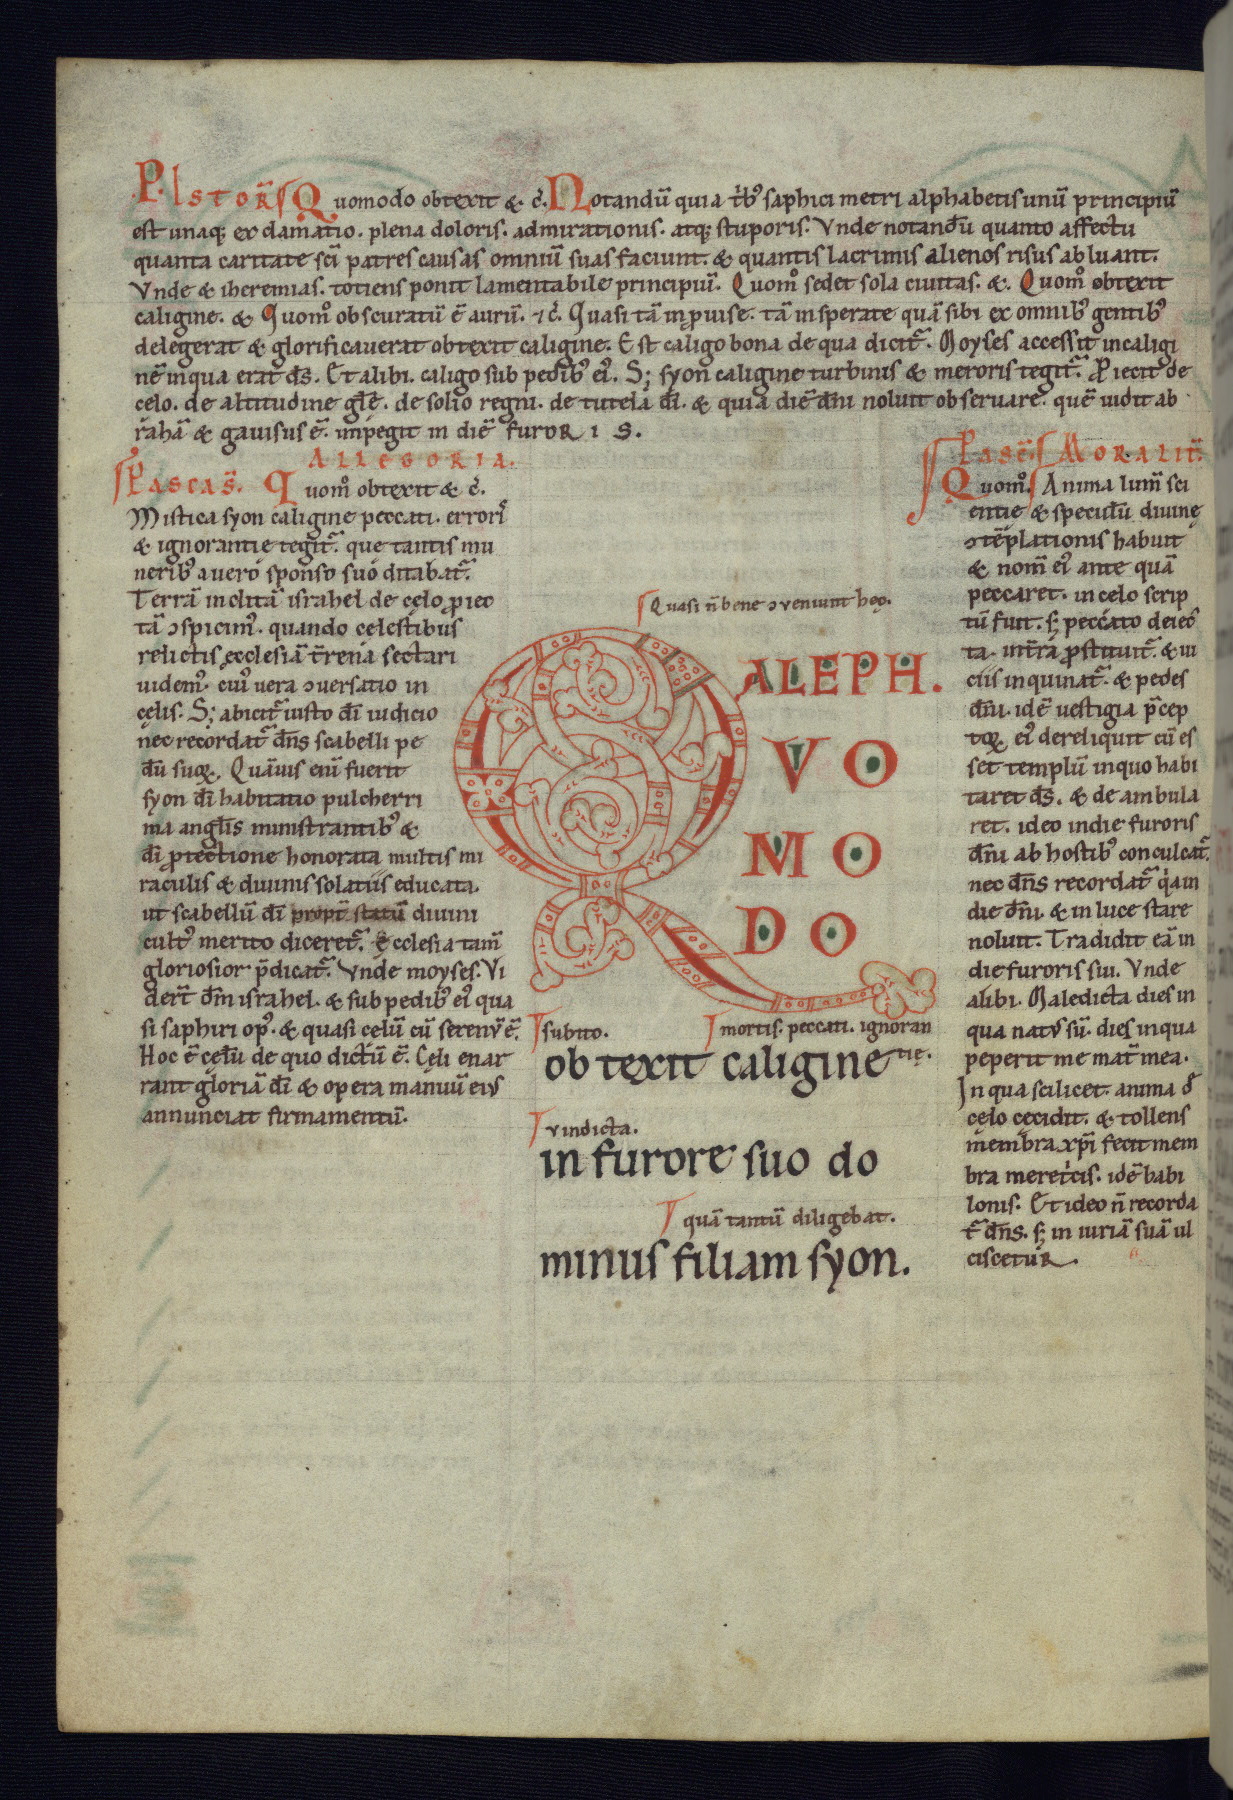 P. IstoR̄s Quomodo obtexit & c̄. Notandū quia trib; saphici metri alphabetis unū principiū
est unaq; exclamatio. plena doloris. admirationis. atq; stuporis. Vnde notandū quanto affectu
quanta caritate sc̄i patres causas omniū suas faciunt. & quantis lacrimis alienos risus abluant.
Vnde & iheremias. totiens ponit lamentabile principiū. Quom̊ sedet sola ciuitas. &. Quom̊ obtexit
caligine. & Quom̊ obscuratū ē aurū. ⁊ c̄. Quasi tā inprouise. tā insperate quā sibi ex omnib; gentib;
delegerat & glorificauerat obtexit caligine. Est caligo bona de qua dicit̄. Moyses accessit incaligi
nē inqua erat d̄s. Et alibi. caligo sub pedib; ei᾽. S; syon caligine turbinis & meroris tegit̄. Proiecit de
celo. de altitudine gl̄e. de solio regni. de tutela dī. & quia diē dn̄i noluit obseruare. quē uidit ab
rahā & gauisus ē. impegit in diē furoRiS.
ALLEGORIA.
Pascas̄. Quom̊ obtexit & c̄.
Mistica syon caligine peccati. erroris
& ignorantie tegit̄. que tantis mu
nerib; a uero sponso suo ditabat̄.
Terrā inclitā israhel de cęlo proiec
tā ɔspicim᾽. quando cęlestibus
relictis ęcclesiā t̄rena sectari
uidem᾽. cui᾽ uera ɔuersatio in
cęlis. S; abicit̄ iusto dī iudicio
nec recordat̄ dn̄s scabelli pe
dū suoꝝ. Quāuis enī fuerit
syon dī habitatio pulcherri
ma angl̄is ministrantib; &
dī protectione honorata multis mi
raculis & diuinis solatiis educata.
ut scabellū dī propt̄ statū diuini
cult᾽ merito diceret̄. Ęcclesia tam̄
gloriosior p̄dicat̄. Vnde moyses. Vi
der̄t dm̄ israhel. & sub pedib; ei᾽ qua
si saphiri op᾽. & quasi celū cū serenū ē.
Hoc ē cęlū de quo dictū ē. Cęli enar
rant gloriā dī & opera manuū eius
annunciat firmamentū.
Quasi n̄ bene ɔueniunt hęc.
Q ALEPH.
VO
MO
DO
subito. mortis. peccati. ignoran
obtexit caligine tię.
vindicta.
in furore suo do
quā tantū diligebat.
minus filiam syon.
Pasc̄s MoRalit̄.
Quom̊. Anima lum̄ sci
entię & speculū diuinę
ɔtēplationis habuit
& nom̄ ei᾽ ante quā
peccaret. in celo scrip
tū fuit. s; peccato deiec
ta. int̄ra prostituit̄. & ui
ciis inquinat̄. & pedes
dn̄i. idē uestigia p̄cep
toꝝ ei᾽ dereliquit cū es
set templū inquo habi
taret d̄s. & deambula
ret. ideo indie furoris
dn̄i ab hostib; conculcat̄.
nec dn̄s recordat̄ quia in
die dn̄i. & in luce stare
noluit. Tradidit eā in
die furoris sui. Vnde
alibi. Maledicta dies in
qua natus sū. dies inqua
peperit me mat̄ mea.
In qua scilicet. anima de
cęlo cęcidit. & tollens
membra xp̄i fecit mem
bra meretricis. idē babi
lonis. Et ideo n̄ recorda
t̄ dn̄s. s; in iuriā suā ul
ciscetuR.